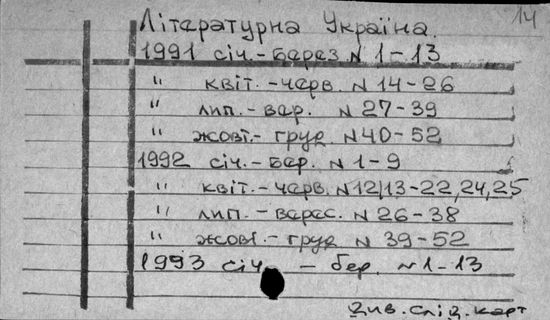 14
Літературна Україна.
1991 січ.-берез N 1-13
" квіт.-черв. N 14-26
" лип.-вер. N 27-39
" жовт.-груд N 40-52
1992 січ.-бер. N 1-9
" квіт.-черв. N 12,13-22,24,25
" лип.-верес. N 26-38
" жовт.-груд N 39-52
1993 січ - бер. N 1-13
див. слід. карт